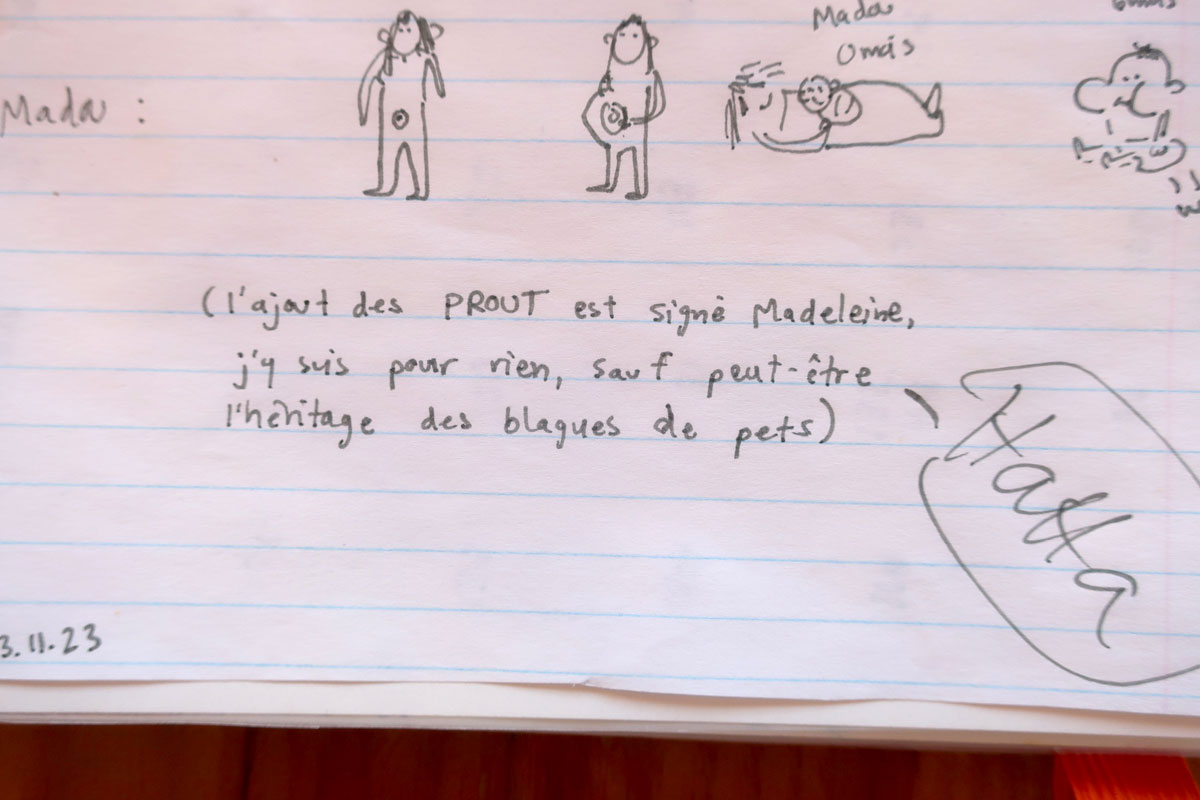 Mada
Omás
Mada :
(l'ajout des PROUT est signé Madeleine,
j'y suis pour rien, sauf peut-être
l'héritage des blagues de pets)
3.11.23